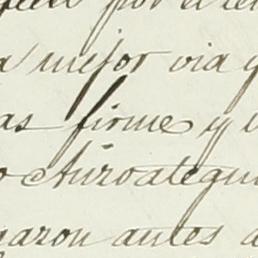 por
a mejor via q
as firme y
o Auroategui
garon antes d